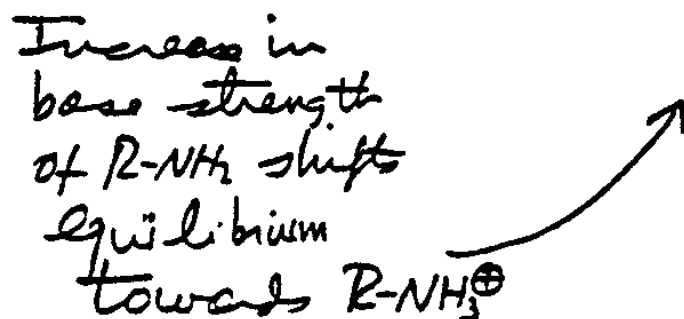 Increase in
base strength
of R-NH₂ shifts
equilibrium
towards R-NH₃⊕